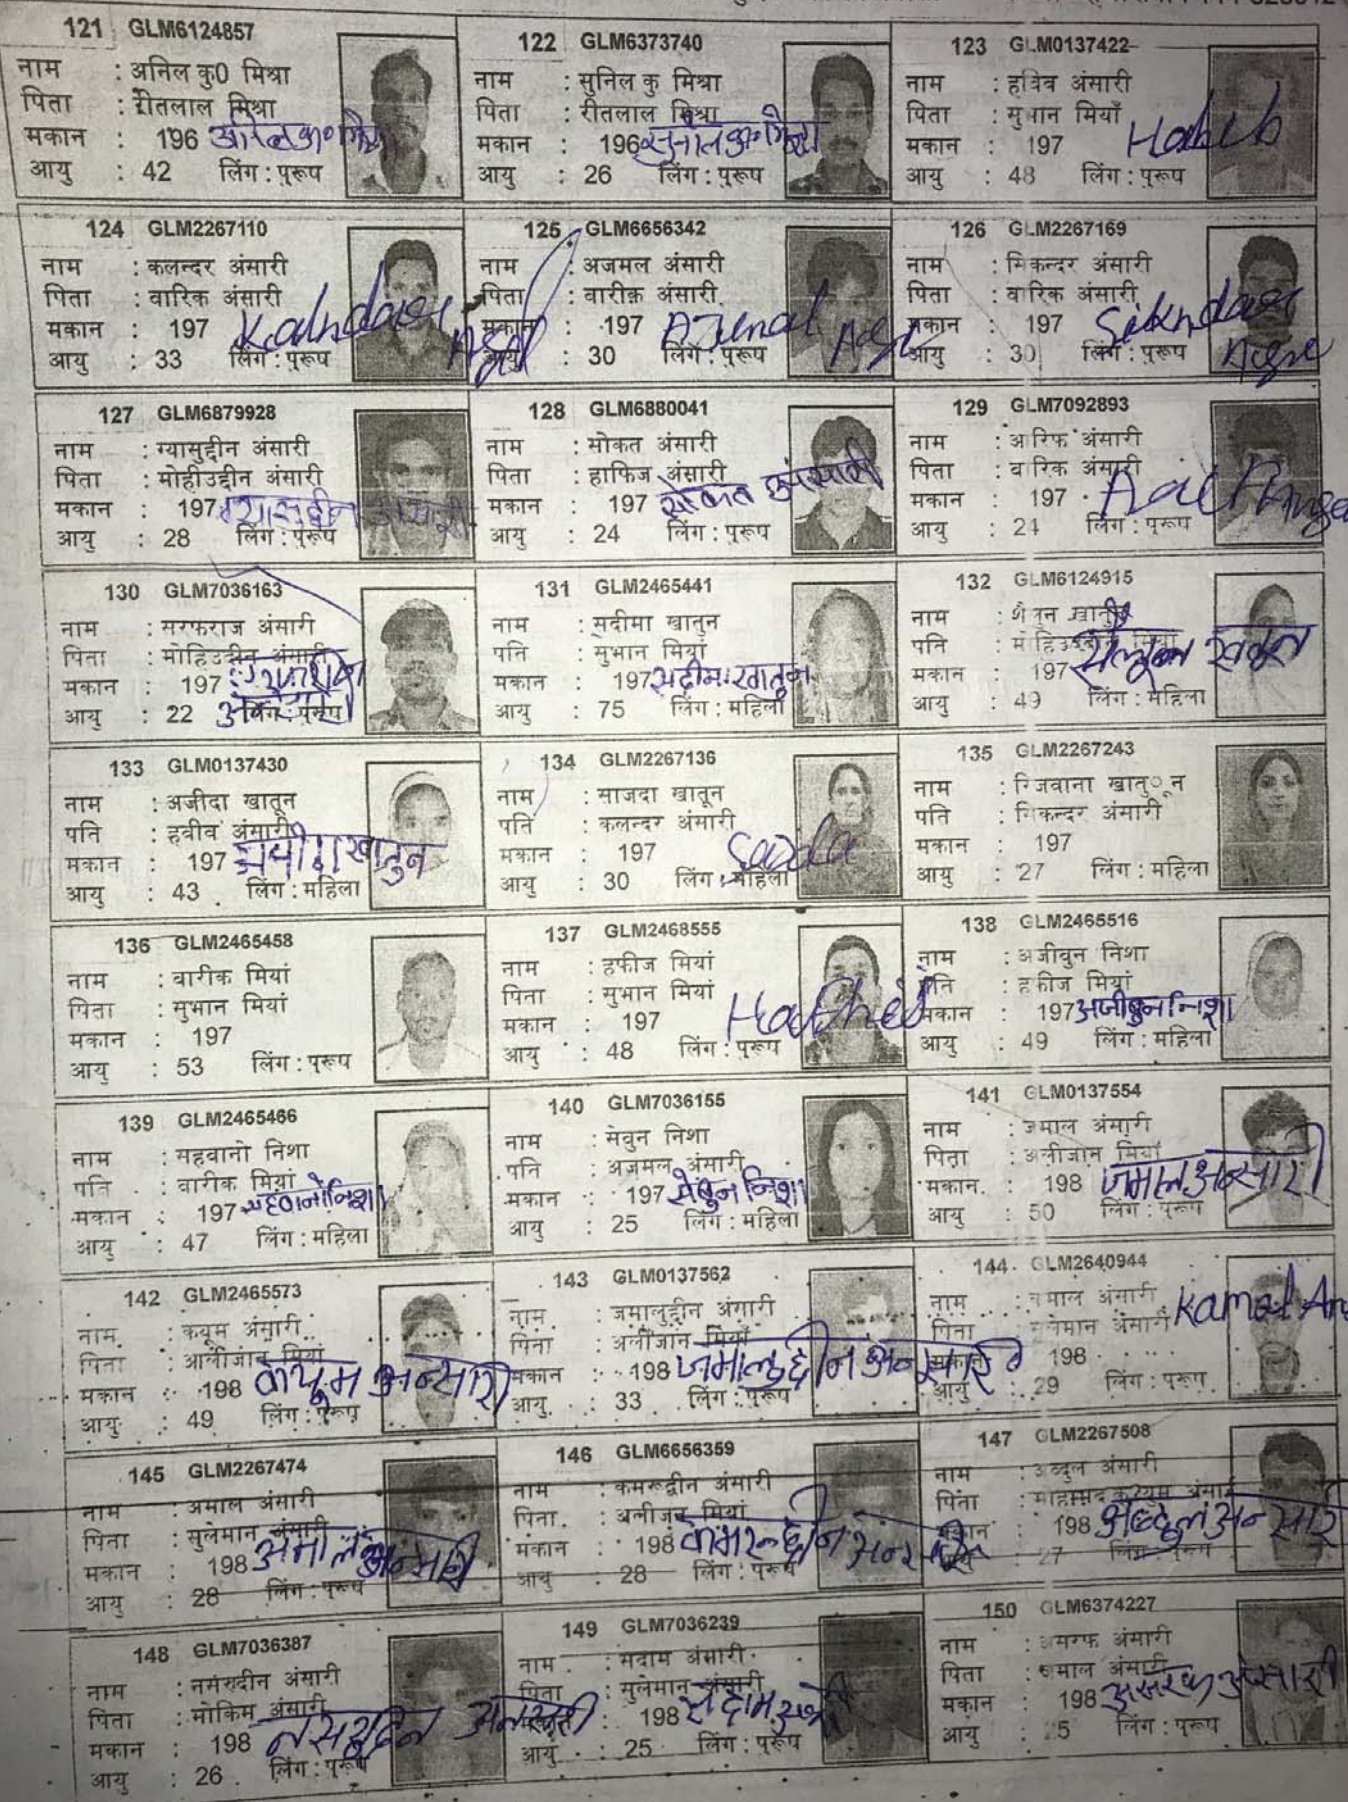 121 GLM6124857
नाम : अनिल कु0 मिश्रा
पिता : रीतलाल मिश्रा
मकान : 196 अनिल कु० मिश्रा
आयु : 42 लिंग : पुरूष
122 GLM6373740
नाम : सुनिल कु मिश्रा
पिता : रीतलाल मिश्रा
मकान : 196 सुनील कु० मिश्रा
आयु : 26 लिंग : पुरूष
123 GLM0137422
नाम : हबिब अंसारी
पिता : सुभान मियाँ
मकान : 197 Habib
आयु : 48 लिंग : पुरूष
124 GLM2267110
नाम : कलन्दर अंसारी
पिता : वारिक अंसारी
मकान : 197
आयु : 33 लिंग : पुरूष
125 GLM6656342
नाम : अजमल अंसारी
पिता : वारीक़ अंसारी
मकान : 197 Ajmal
आयु : 30 लिंग : पुरूष
126 GLM2267169
नाम : सिकन्दर अंसारी
पिता : वारिक अंसारी
मकान : 197
आयु : 30 लिंग : पुरूष
127 GLM6879928
नाम : ग्यासुद्दीन अंसारी
पिता : मोहीउद्दीन अंसारी
मकान : 197 ग्यासुद्दीन अंसारी
आयु : 28 लिंग : पुरूष
128 GLM6880041
नाम : सोकत अंसारी
पिता : हाफिज अंसारी
मकान : 197 सोकत अंसारी
आयु : 24 लिंग : पुरूष
129 GLM7092893
नाम : आरिफ अंसारी
पिता : वारिक अंसारी
मकान : 197
आयु : 24 लिंग : पुरूष
130 GLM7036163
नाम : सरफराज अंसारी
पिता : मोहिउद्दीन अंसारी
मकान : 197
आयु : 22 लिंग : पुरूष
131 GLM2465441
नाम : सदीमा खातुन
पति : सुभान मियां
मकान : 197 सदीमा खातुन
आयु : 75 लिंग : महिला
132 GLM6124915
नाम : खातुन
पति : मियां
मकान : 197
आयु : 49 लिंग : महिला
133 GLM0137430
नाम : अजीदा खातून
पति : हबीब अंसारी
मकान : 197 खातुन
आयु : 43 लिंग : महिला
134 GLM2267136
नाम : साजदा खातून
पति : कलन्दर अंसारी
मकान : 197 Sajda
आयु : 30 लिंग : महिला
135 GLM2267243
नाम : रिजवाना खातु◌ून
पति : सिकन्दर अंसारी
मकान : 197
आयु : 27 लिंग : महिला
136 GLM2465458
नाम : वारीक मियां
पिता : सुभान मियां
मकान : 197
आयु : 53 लिंग : पुरूष
137 GLM2468555
नाम : हफीज मियां
पिता : सुभान मियां
मकान : 197
आयु : 48 लिंग : पुरूष
138 GLM2465516
नाम : अजीबुन निशा
पति : हफीज मियां
मकान : 197 अजीबुन निशा
आयु : 49 लिंग : महिला
139 GLM2465466
नाम : सहवानो निशा
पति : वारीक मियां
मकान : 197 सहवानो निशा
आयु : 47 लिंग : महिला
140 GLM7036155
नाम : सेवुन निशा
पति : अजमल अंसारी
मकान : 197 सेबुन निशा
आयु : 25 लिंग : महिला
141 GLM0137554
नाम : जमाल अंसारी
पिता : अलीजान मियां
मकान : 198 जमाल अन्सारी
आयु : 50 लिंग : पुरूष
142 GLM2465573
नाम : कयूम अंसारी
पिता : आलीजान मियां
मकान : 198 कयूम अन्सारी
आयु : 49 लिंग : पुरूष
143 GLM0137562
नाम : जमालुद्दीन अंसारी
पिता : अलीजान मियाँ
मकान : 198 जमालुद्दीन अन्सारी
आयु : 33 लिंग : पुरूष
144 GLM2640944
नाम : कमाल अंसारी Kamal
पिता : सुलेमान अंसारी
मकान : 198
आयु : 29 लिंग : पुरूष
145 GLM2267474
नाम : अमाल अंसारी
पिता : सुलेमान अंसारी
मकान : 198 अमाल अन्सारी
आयु : 28 लिंग : पुरूष
146 GLM6656359
नाम : कमरूद्वीन अंसारी
पिता : अलीजन मियां
मकान : 198 कमरुद्दीन अन्सारी
आयु : 28 लिंग : पुरूष
147 GLM2267508
नाम : अब्दुल अंसारी
पिता : माहाम्मद कय्युम अंसारी
मकान : 198 अब्दुल अन्सारी
आयु : 27 लिंग : पुरूष
148 GLM7036387
नाम : नसरुदीन अंसारी
पिता : मोकिम अंसारी
मकान : 198 अनसारी
आयु : 26 लिंग : पुरूष
149 GLM7036239
नाम : सदाम अंसारी
पिता : सुलेमान अंसारी
मकान : 198 सदाम
आयु : 25 लिंग : पुरूष
150 GLM6374227
नाम : असरफ अंसारी
पिता : जमाल अंसारी
मकान : 198 अंसारी
आयु : लिंग : पुरूष